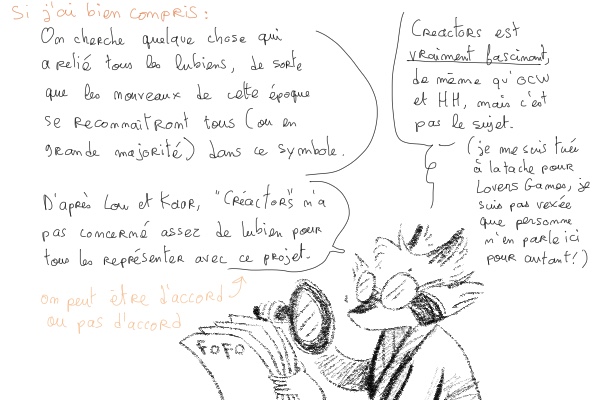 Si j'ai bien compris :
On cherche quelque chose qui
a relié tous les lubiens, de sorte
que les nouveaux de cette époque
se reconnaîtront tous (ou en
grande majorité) dans ce symbole.
D'après Lou et Kaor, "Créactors" n'a
pas concerné assez de lubien pour
tous les représenter avec ce projet.
on peut être d'accord
ou pas d'accord
Creactors est
vraiment fascinant,
de même qu'OCW
et HH, mais c'est
pas le sujet.
(je me suis tuée
à la tache pour
Lovers Games, je
suis pas vexée
que personne
m'en parle ici
pour autant!)
FOFO